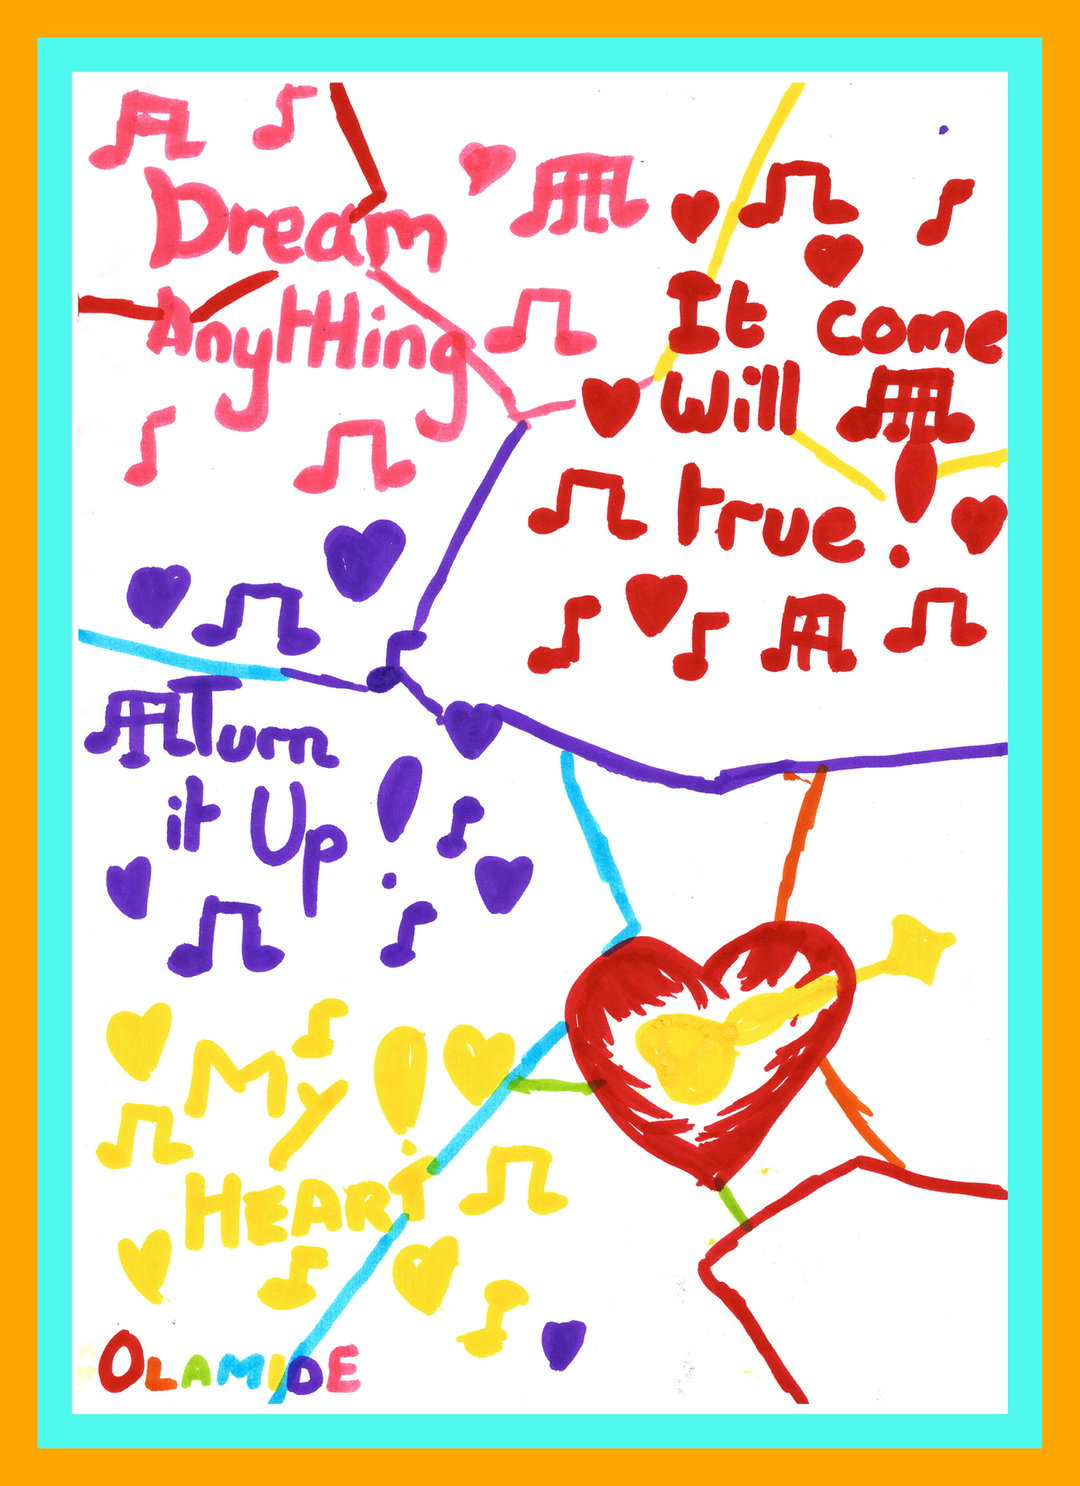 Dream
Anything
It come
Will
true!
Turn
it Up!
My!
HEART
OLAMIDE